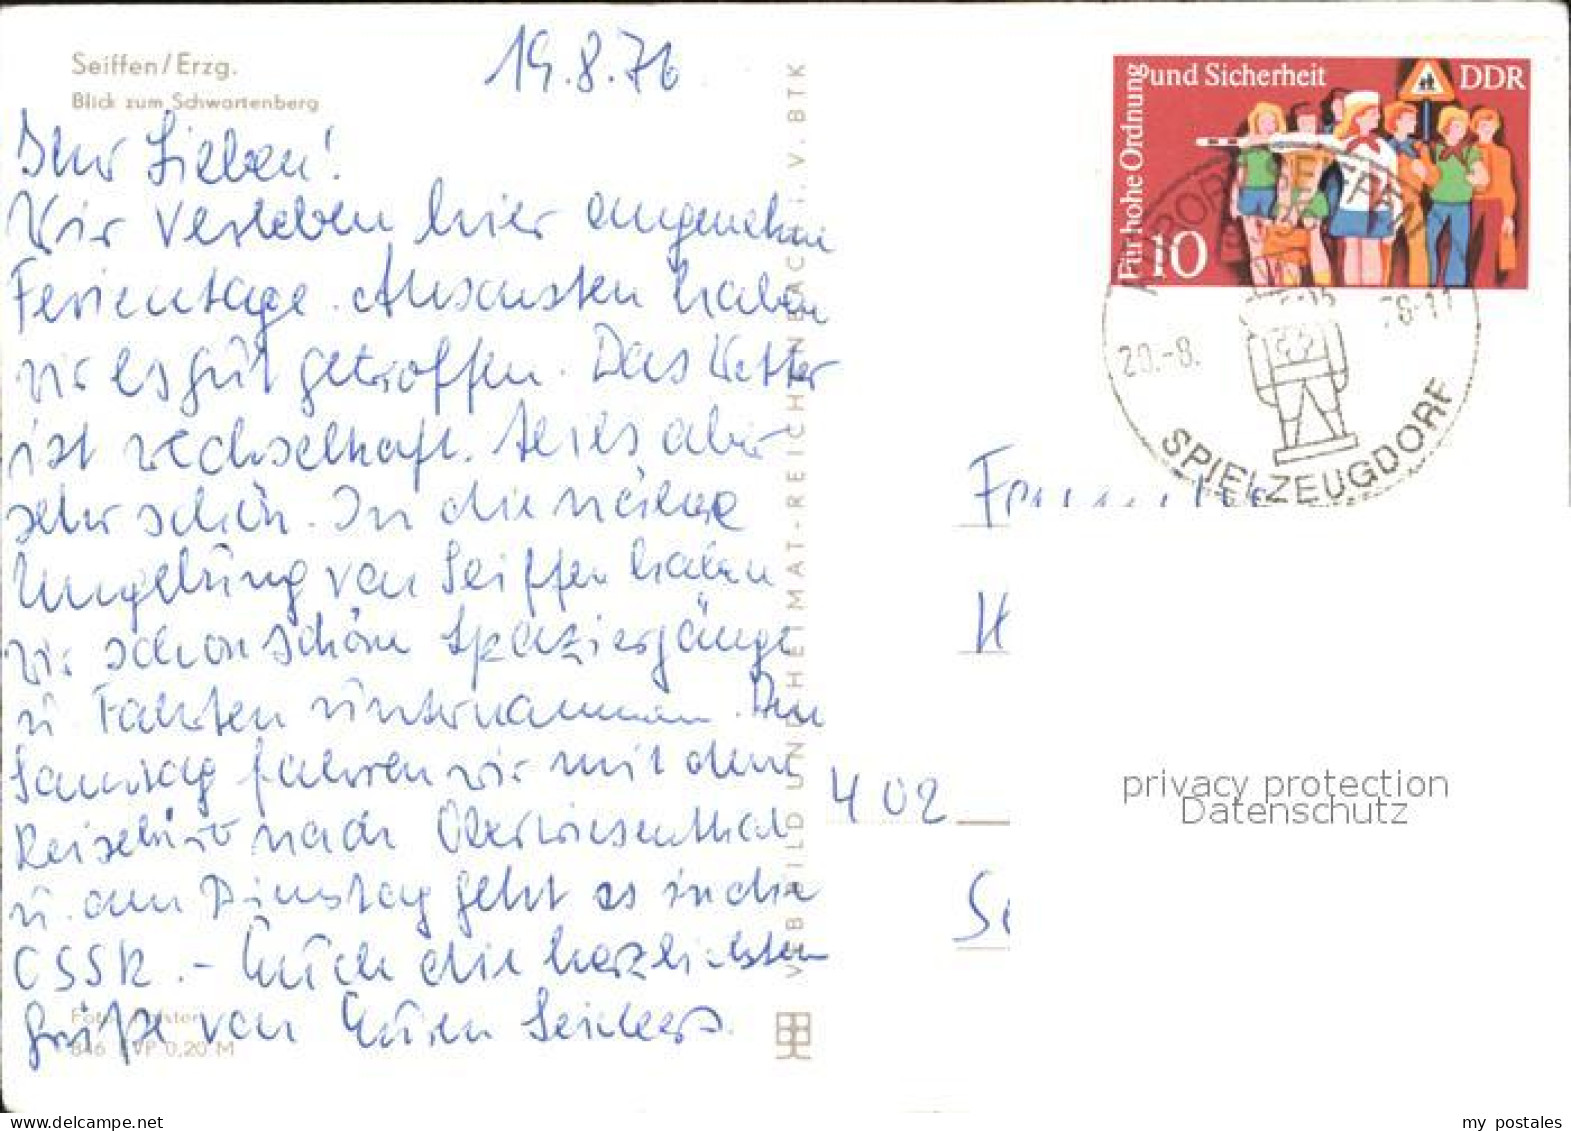 19.8.76
Seiffen/Erzg.
Blick zum Schwartenberg
Ihr Lieben!
Wir verleben hier angenehme
Ferientage. Ansonsten haben
wir es gut getroffen. Das Wetter
ist wechselhaft. Seiffen aber
sehr schön. In die nähere
Umgebung von Seiffen haben
wir schon schöne Spaziergänge
u. Fahrten unternommen. Am
Samstag fahren wir mit dem
Reisebüro nach Oberwiesenthal
u. am Dienstag geht es in die
CSSR. - Euch die herzlichsten
Grüße von Euren
846 EVP 0,20 M
VEB BILD UND HEIMAT-REICHENBACH i. V. BTK
Für hohe Ordnung und Sicherheit
DDR
10
KURORT SEIFFEN
20.-8. 76-11
SPIELZEUGDORF
Familie
H
402
privacy protection
Datenschutz
my postales